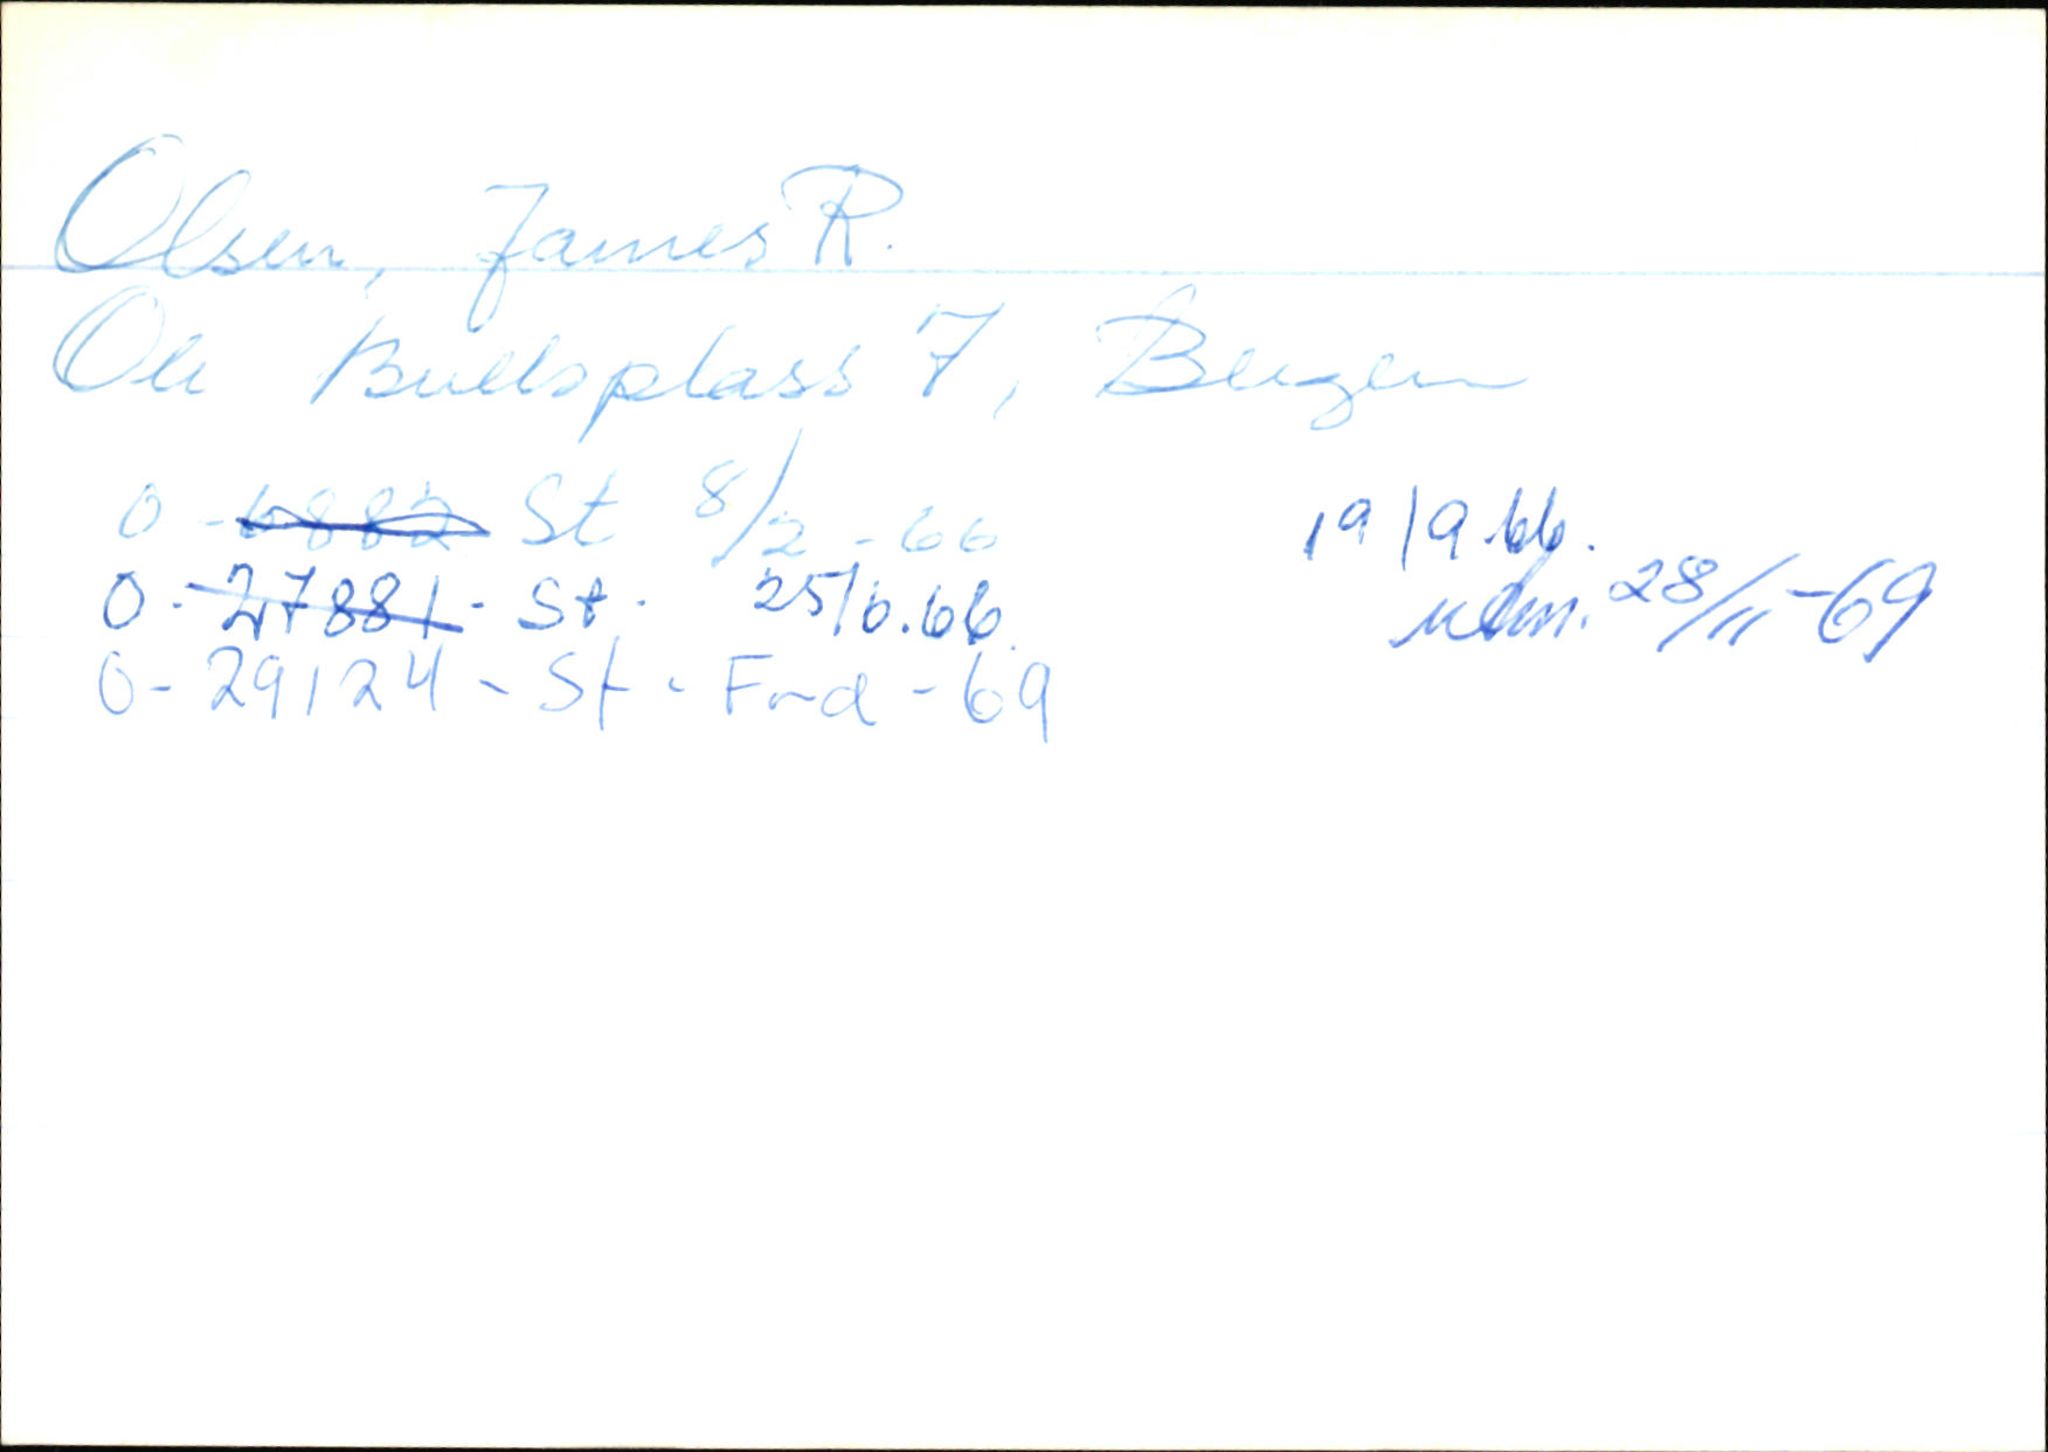 Olsen, James R.
Ole Bullsplass 7, Bergen
0 - 6882 St 8/2 - 66 19/9.66.
0 - 27881 - St. 25/6.66. utm. 28/11-69
0 - 29124 - St - Ford - 69